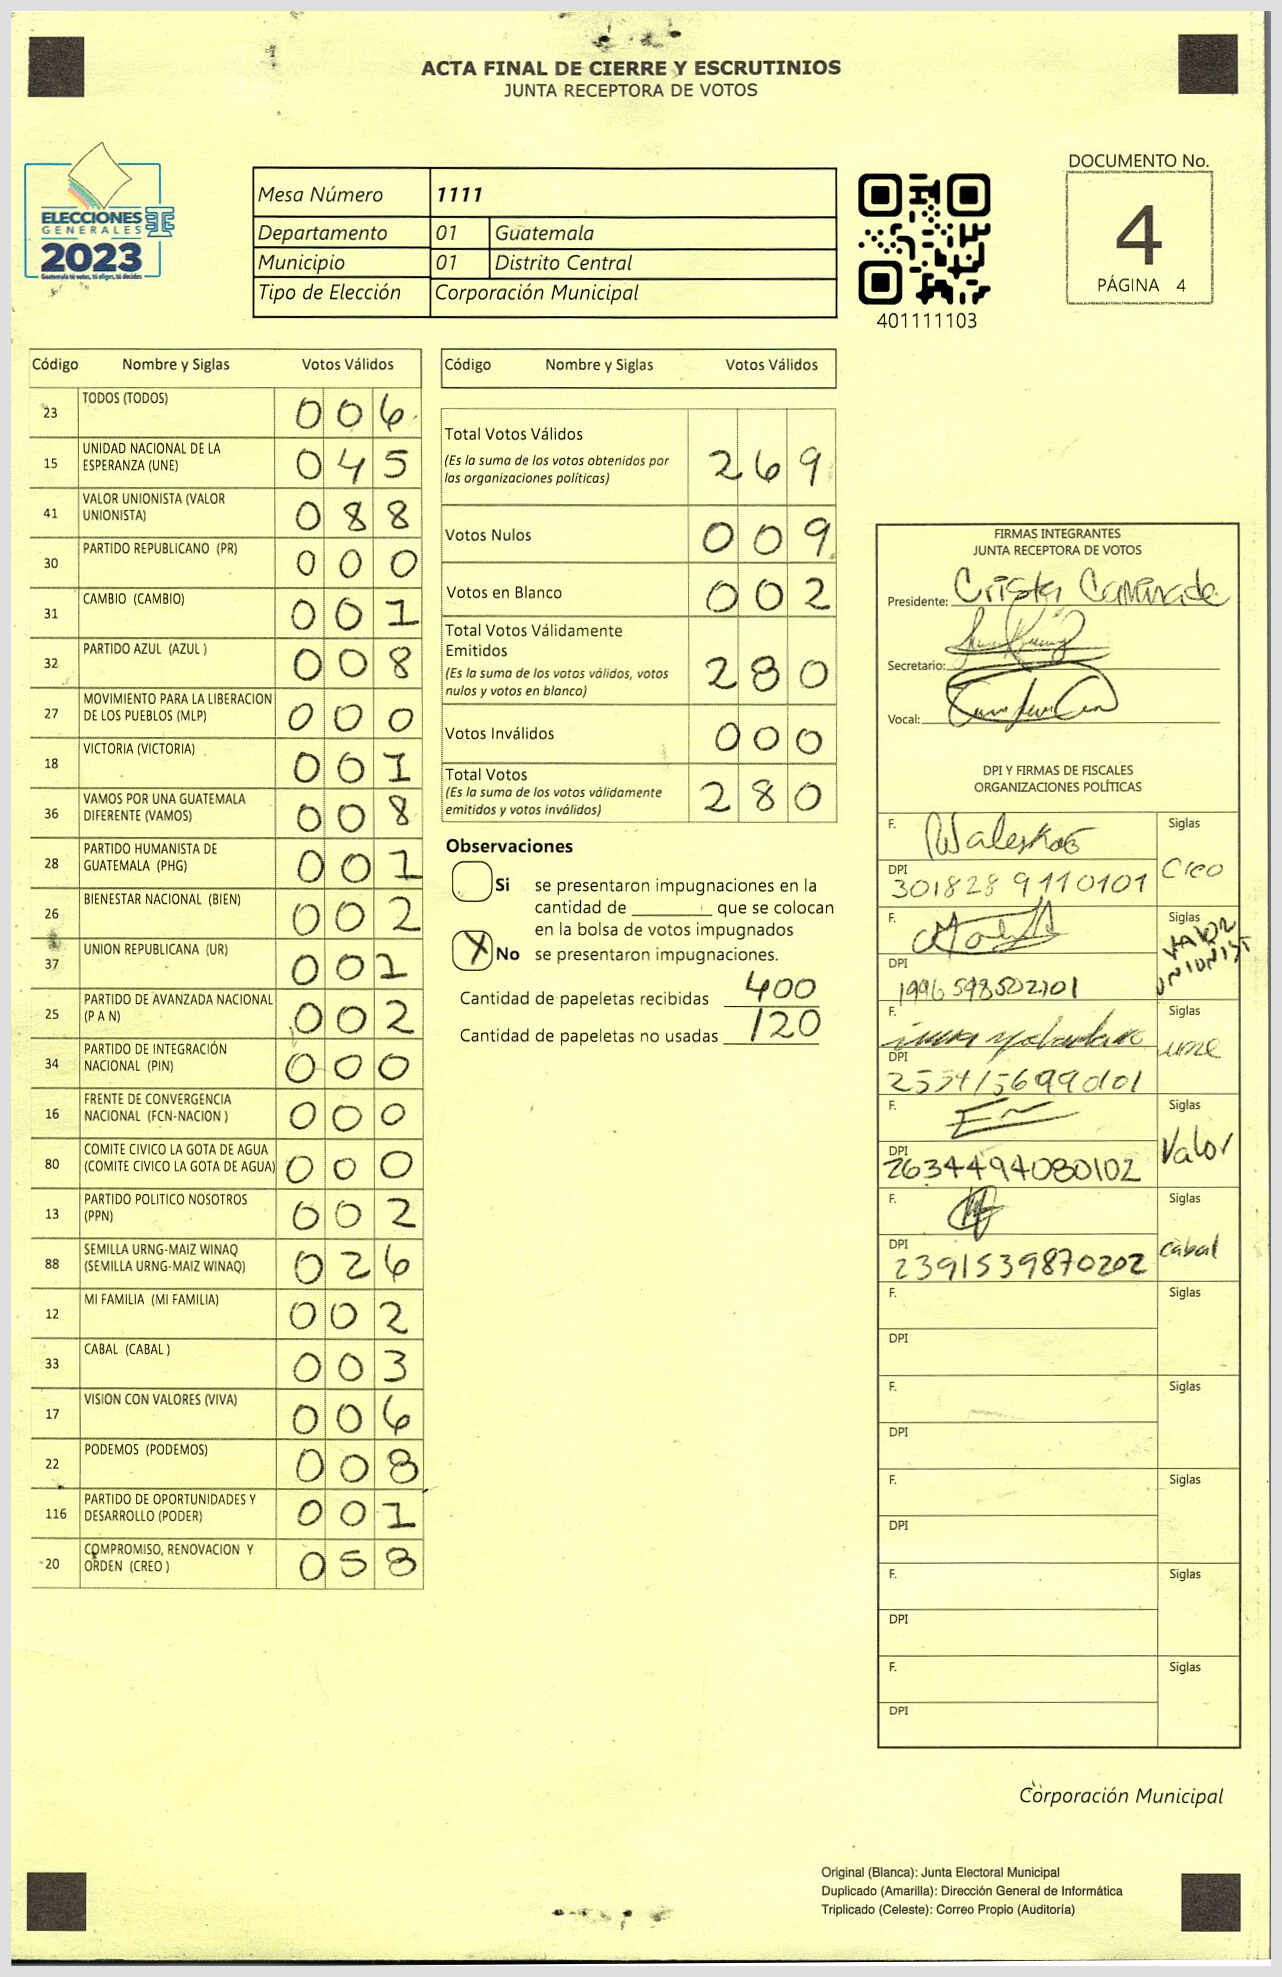 ACTA FINAL DE CIERRE Y ESCRUTINIOS
JUNTA RECEPTORA DE VOTOS
ELECCIONES
GENERALES
2023
Guatemala tú votas, tú eliges, tú decides
Mesa Número 1111
Departamento 01 Guatemala
Municipio 01 Distrito Central
Tipo de Elección Corporación Municipal
401111103
DOCUMENTO No.
4
PÁGINA 4
Código Nombre y Siglas Votos Válidos
23 TODOS (TODOS) 006
15 UNIDAD NACIONAL DE LA
ESPERANZA (UNE) 045
41 VALOR UNIONISTA (VALOR
UNIONISTA) 088
30 PARTIDO REPUBLICANO (PR) 000
31 CAMBIO (CAMBIO) 001
32 PARTIDO AZUL (AZUL ) 008
27 MOVIMIENTO PARA LA LIBERACION
DE LOS PUEBLOS (MLP) 000
18 VICTORIA (VICTORIA) 001
36 VAMOS POR UNA GUATEMALA
DIFERENTE (VAMOS) 008
28 PARTIDO HUMANISTA DE
GUATEMALA (PHG) 001
26 BIENESTAR NACIONAL (BIEN) 002
37 UNION REPUBLICANA (UR) 001
25 PARTIDO DE AVANZADA NACIONAL
(P A N) 002
34 PARTIDO DE INTEGRACIÓN
NACIONAL (PIN) 000
16 FRENTE DE CONVERGENCIA
NACIONAL (FCN-NACION ) 000
80 COMITE CIVICO LA GOTA DE AGUA
(COMITE CIVICO LA GOTA DE AGUA) 000
13 PARTIDO POLITICO NOSOTROS
(PPN) 002
88 SEMILLA URNG-MAIZ WINAQ
(SEMILLA URNG-MAIZ WINAQ) 026
12 MI FAMILIA (MI FAMILIA) 002
33 CABAL (CABAL ) 003
17 VISION CON VALORES (VIVA) 006
22 PODEMOS (PODEMOS) 008
116 PARTIDO DE OPORTUNIDADES Y
DESARROLLO (PODER) 001
20 COMPROMISO, RENOVACION Y
ORDEN (CREO ) 058
Código Nombre y Siglas Votos Válidos
Total Votos Válidos
(Es la suma de los votos obtenidos por
las organizaciones políticas) 269
Votos Nulos 009
Votos en Blanco 002
Total Votos Válidamente
Emitidos
(Es la suma de los votos válidos, votos
nulos y votos en blanco) 280
Votos Inválidos 000
Total Votos
(Es la suma de los votos válidamente
emitidos y votos inválidos) 280
Observaciones
Si se presentaron impugnaciones en la
cantidad de ________ que se colocan
en la bolsa de votos impugnados
X No se presentaron impugnaciones.
Cantidad de papeletas recibidas 400
Cantidad de papeletas no usadas 120
FIRMAS INTEGRANTES
JUNTA RECEPTORA DE VOTOS
Presidente:
Secretario:
Vocal:
DPI Y FIRMAS DE FISCALES
ORGANIZACIONES POLÍTICAS
F. Siglas
Creo
DPI
3018289110101
F. Siglas
VALOR
UNIONIST
DPI
F. Siglas
une
DPI
F. Siglas
Valor
DPI
2634494080102
F. Siglas
cabal
DPI
2391539870202
F. Siglas
DPI
F. Siglas
DPI
F. Siglas
DPI
F. Siglas
DPI
F. Siglas
DPI
Corporación Municipal
Original (Blanca): Junta Electoral Municipal
Duplicado (Amarilla): Dirección General de Informática
Triplicado (Celeste): Correo Propio (Auditoría)